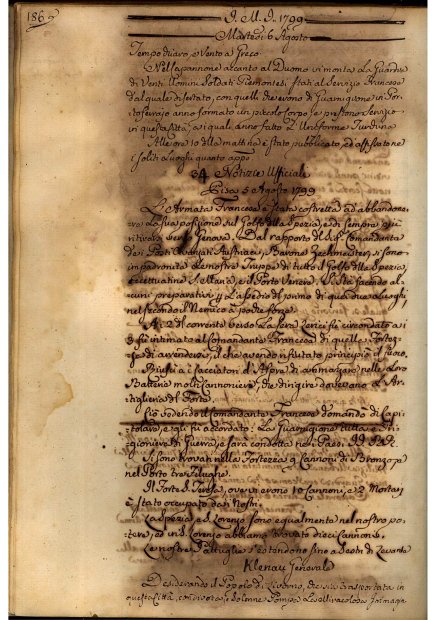 186
I. M. I. 1799
Martedì 6 Agosto
Tempo Vario, e Vento a Greco
Nel Capannone accanto al Duomo vi monta La Guardia
di Venti Uomini Soldati Piemontesi stati al Servizio Francese
dal quale disertato, con quelli che erono di Guarnigione in Por-
toferraio anno formato un piccolo Corpo, e prestono Servizio
in questa Città, a i quali anno fatto L'Uniforme Turchina
Alle ore 10 della mattina è stato pubblicato, ed affisso ne
i soliti Luoghi quanto app.o
34 Notizie Ufficiali
Pisa 5 Agosto 1799
L'Armata Francese è stata costretta ad abbandona-
re La sua posizione sul Golfo della Spezia, e di sempre più
ritirarsi verso Genova. Dal rapporto del Sig.r Comandante
de i Posti Avanzati Austriaci, Barone si sono
impadronite Le nostre Truppe di tutto il Golfo della Spezia
eccettuatine S. Maria, e il Porto Venere. Si sta facendo al-
cuni preparativi p. L'assedio del primo di quei due Luoghi,
nel secondo il Nemico à poche forze.
Ai 2 del corrente verso La sera Lerici fu circondato, a i
3 fu intimato al Comandante Francese di quella Fortez-
za di arrendersi, il che avendo rifiutato principiò il fuoco.
Riuscì a i Cacciatori d'Aspre di ammazzare nelle Loro
Batterie molti Cannonieri, che dirigere dovevano L'Ar-
tiglieria del Forte.
Ciò vedendo il Comandante Francese domandò di Capi-
tolare, e gli fu accordato: La Guarnigione tutta è Pri-
gioniera di Guerra, e sarà condotta ne i Paesi
Si sono trovati nella Fortezza 9 Cannoni di Bronzo, e
nel Porto tre Feluche.
Il Forte S. Teresa, ove vi erono 10 Cannoni, e 2 Mortari
è stato occupato da i Nostri.
La Spezia, e S. Lorenzo sono egualmente nel nostro po-
tere, ed in S. Lorenzo abbiamo trovato dieci Cannoni.
Le nostre Pattuglie s'estendono sino a Sestri di Levante
Klenau Generale
Desiderando il Popolo di Livorno, che sia trasportata in
questa Città, con decorosa, e solenne Pompa La Miracolosa Immagine